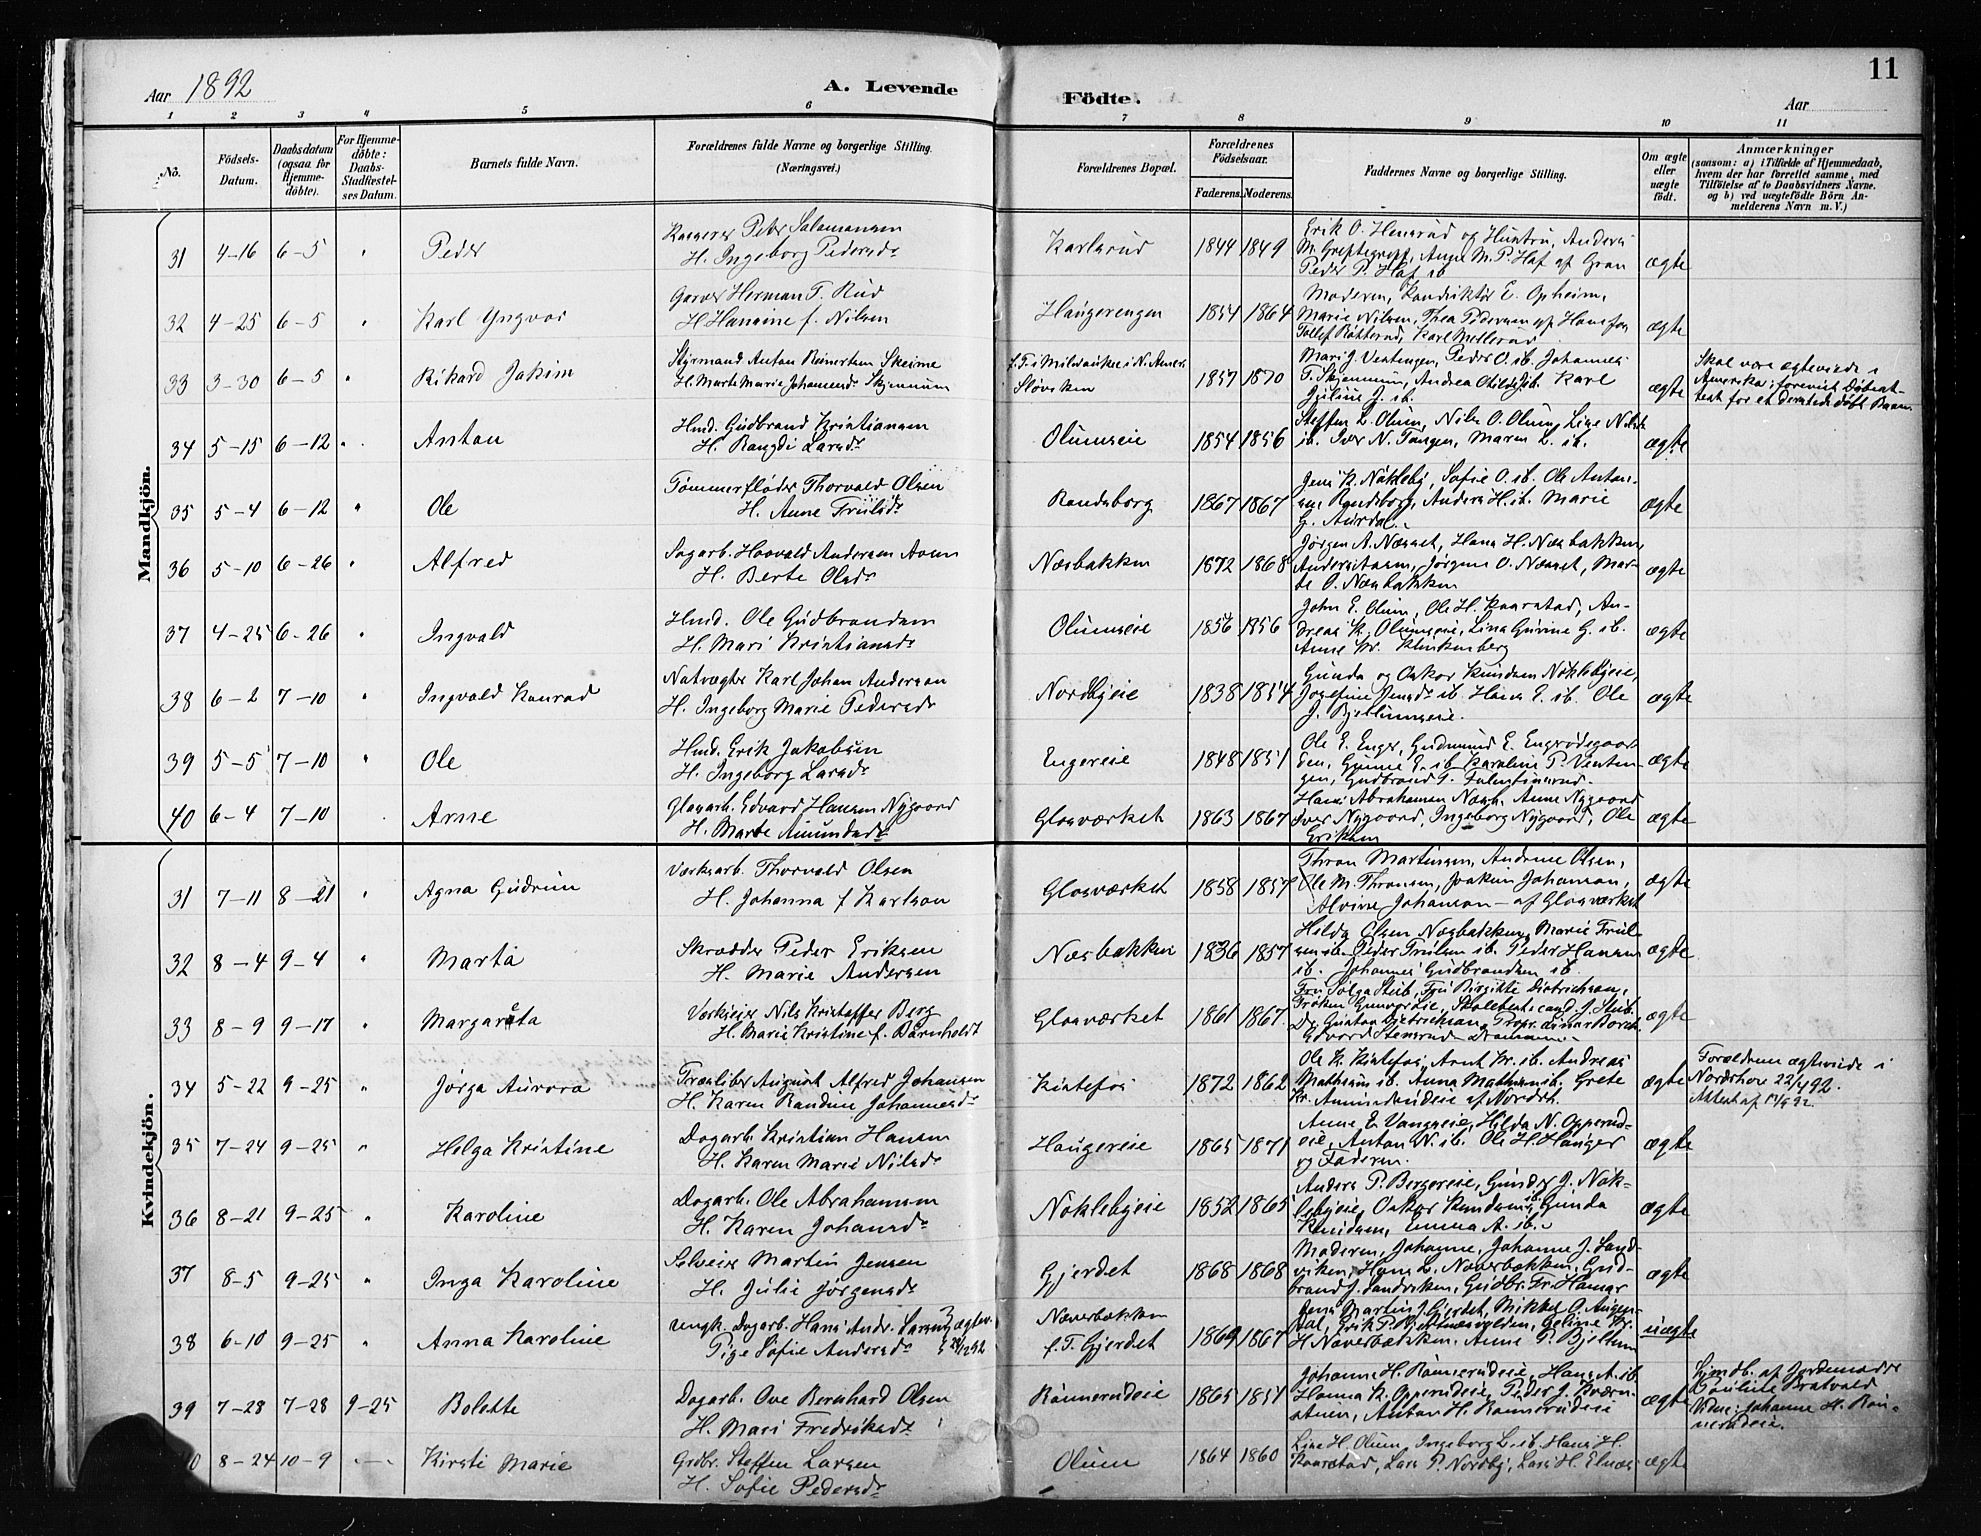 11
Aar 1892
A. Levende
Födte.
Aar
1 2 3 4 5 6 7 8 9 10 11
No.
Födsels-Datum.
Daabsdatum (ogsaa for Hjemmedöbte).
For Hjemmedöbte: Daabs-Stadfæstelses Datum.
Barnets fulde Navn.
Forældrenes fulde Navne og borgerlige Stilling. (Næringsvei.)
Forældrenes Bopæl.
Forældrenes Födselsaar.
Faderens. Moderens.
Faddernes Navne og borgerlige Stilling.
Om ægte eller uægte födt.
Anmærkninger
(saasom: a) i Tilfælde af Hjemmedaab, hvem der har forrettet samme, med Tilföielse af to Daabsvidners Navne, og b) ved uægtefödte Börn Anmelderens Navn m. V.)
Mandkjön.
31 4-16 6-5 " Peder
Peder Salamonsen
H. Ingeborg Pedersdr
Karlsrud 1844 1849
Erik O. Hensrud og Hustru, Anders
Peder P. Haf ib
ægte
32 4-25 6-5 " Karl Yngvar
Garver Herman T. Rud
H. Hansine f. Nilsen
Haugerengen 1854 1864
Moderen, Konduktör E. Opheim,
Marie Nilsen, Thea Pedersen
Karl Mellerud
ægte
33 3-30 6-5 " Rikard Jakim
Styrmand Anton Reinertsen Skeime
H. Marte Marie Johannesdr Skjennum
f. T. i Milwaukee i N. Amer.
Slövika 1857 1870
Mari J. Ventengen, Peder O. ib. Johannes
T. Skjennum, Andrea ib. Karl
J. ib.
ægte
Skal være ægteviede i
Amerika; forevist Döbeattest for et derstede döbt Barn
34 5-15 6-12 " Anton
Hmd. Gudbrand Kristiansen
H. Rangdi Larsdr
Olumseie 1854 1856
Steffen L. Olum, Nils O. Olum, Lise Nilsdr
ib. Iver N. Tangen, Maren L. ib.
ægte
35 5-4 6-12 " Ole
Tömmerflöder Thorvald Olsen
H. Anne Trulsdr
Randsborg 1867 1867
Jens K. Nökleby, Sofie O. ib. Ole Antonsen Randsborg, Anders H. ib. Marie
G. Aurdal.
ægte
36 5-10 6-26 " Alfred
Sagarb. Haavald Andersen Aasen
H. Berte Olsdr
Næsbakken 1872 1868
Jörgen A. Næsset, Hans H. Næsbakken,
Jörgine O. Næsset, Marte O. Næsbakken
ægte
37 4-25 6-26 " Ingvald
Hmd. Ole Gudbrandsen
H. Mari Kristiansdr
Olumseie 1856 1856
John E. Olum, Ole H. Kaarstad, Andreas K. Olumseie, Lina Gurine G. ib.
Anne Kr. Klinkenberg
ægte
38 6-2 7-10 " Ingvald Konrad
Natvægter Karl Johan Anderson
H. Ingeborg Marie Pedersdr
Nordbyeie 1838 1854
Gunda og Oskar Knudsen Nöklebyeie,
Josefine Jensdr ib. Hans E. ib. Ole
J. Bjellumseie.
ægte
39 5-5 7-10 " Ole
Hmd. Erik Jakobsen
H. Ingeborg Larsdr
Engereie 1848 1851
Ole E. Enger, Gudmund E. Engrödegaarden, Gunne E. ib. Karoline P. Ventengen, Gudbrand G. Falentinsrud.
ægte
40 6-4 7-10 Arne
Glasarb. Edvard Hansen Nygaard
H. Marte Amundsdr
Glasværket 1863 1867
Hans Abrahamsen Næsb. Anne Nygaard
Iver Nygaard, Ingeborg Nygaard, Ole
Eriksen
ægte
Kvindekjön.
31 7-11 8-21 " Agna Gudrun
Værksarb. Thorvald Olsen
H. Johanna f. Karlson
Glasværket 1858 1857
Thron Martinsen, Andrine Olsen,
Ole M. Thronsen, Joakim Johanson,
Alvine Johanson - af Glasværket
ægte
32 8-4 9-4 " Marta
Skrædder Peder Eriksen
H. Marie Andersen
Næsbakken 1836 1857
Hilda Olsen Næsbakken, Marie Trulsen ib. Peder Trulsen ib. Peder Hansen
ib. Johannes Gudbrandsen ib.
ægte
33 8-9 9-17 " Margaréta
Værkseier Nils Kristoffer Berg
H. Marie Kristine f. Bärnholdt
Glasværket 1861 1867
Fru Helga Stub, Fru Birgitte Dietrichson,
Fröken Gunvor Leie, Skolebest. cand. J. Stub.
Dr. Gustav Dietrichson, Propr. Einar Borch,
Edvard Stensrud Drammen
ægte
34 5-22 9-25 " Jörga Aurora
Træsliber August Alfred Johansen
H. Karen Randine Johannesdr
Kistefos 1872 1862
Ole K. Kistefos, Arnt Kr. ib. Andreas
Mathisen ib. Anna Mathisen ib. Grete
Kr. Amundrudeie af Nordrh.
ægte
Forældrene ægteviede i
Norderhov 22/4 92.
Attest af
35 7-24 9-25 " Helga Kristine
Dagarb. Kristian Hansen
H. Karen Marie Nilsdr
Haugereie 1865 1871
Anne E. Vangseie, Hilda N. Opperudeie, Anton N. ib. Ole H. Hauger
og Faderen.
ægte
36 8-21 9-25 " Karoline
Dagarb. Ole Abrahamsen
H. Karen Johansdr
Nöklebyeie 1852 1865
Anders P. Bergereie, Gunder J. Nöklebyeie, Oskar Knudsen ib. Gunda
Knudsen, Emma A. ib.
ægte
37 8-5 9-25 " Inga Karoline
Selveier Martin Jensen
H. Julie Jörgensdr
Gjerdet 1868 1868
Moderen, Johanne, Johanne J. Sandviken, Hans L. Naverbakken, Gudbrand J. Sandviken, Gudbr. Fr. Hamar
ægte
38 6-10 9-25 " Anna Karoline
ungk. Dagarb. Hans Andr. Larsen
Pige Sofie Andersdr
ægtev. 29/12 92
Naverbakken
f. T. Gjerdet 1869 1867
Jens Martin J. Gjerdet, Mikkel O. Augendal, Erik P. Celine Kr.
H. Naverbakken. Anne P. Bjellum
uægte
39 7-28 7-28 9-25 Bolette
Dagarb. Ove Bernhard Olsen
H. Mari Fredriksdr
Rönnerudeie 1865 1851
Johanne H. Rönnerudeie, Hans A. ib
Hanna K. Opperudeie, Peder J. Kværnstuen, Anton H. Rönnerudeie
ægte
Hjmdb. af Jordemoder
Pauline Bratvald
Vidne: Johanne H. Rönnerudeie.
0 8-24 10-9 Kirsti Marie
Grdbr. Steffen Larsen
H. Sofie Pedersdr
Olum 1864 1860
Lise H. Olum, Ingeborg L. ib. Hans H.
Kaarstad, Lars P. Nordby, Lars H. Elnæs
ægte